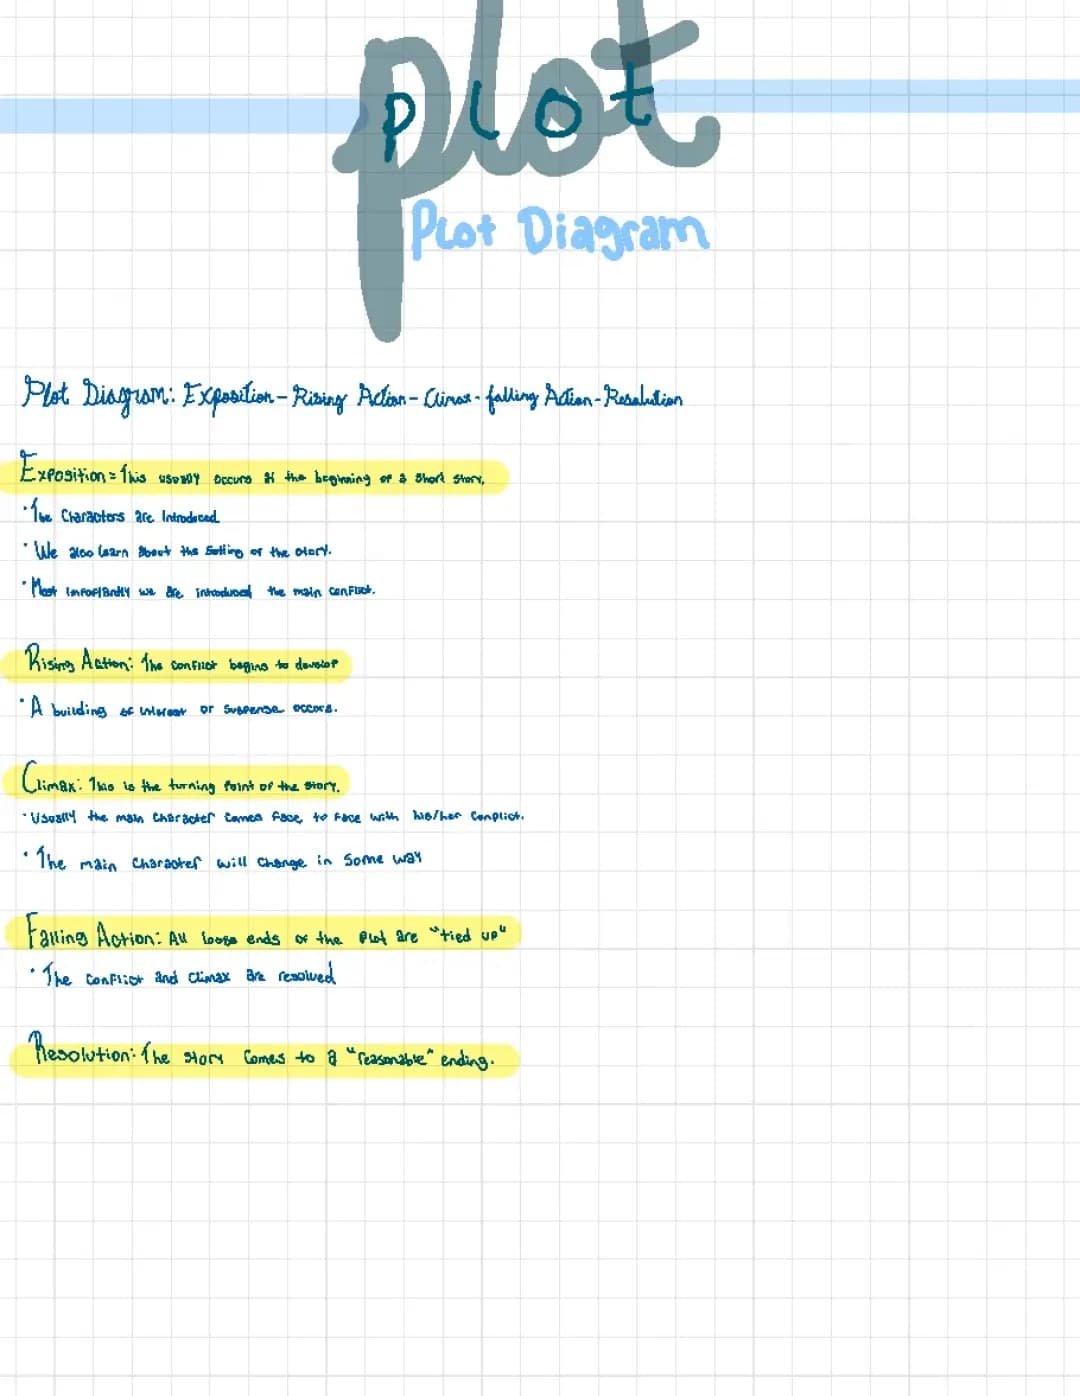 plot
plot
Plot Diagram
Plot Diagram: Exposition - Rising Action - Climax - falling Action - Resolution
Exposition = This usually occurs at the beginning of a short story.
• The Characters are Introduced
• We also learn about the Setting of the story.
• Most importantly we are introduced the main conflict.
Rising Action: The conflict begins to develop
• A building of interest or suspense occurs.
Climax: This is the turning point of the story.
• Usually the main character comes face to face with his/her conflict.
• The main character will change in some way
Falling Action: All loose ends of the plot are "tied up"
• The conflict and climax are resolved
Resolution: The story comes to a "reasonable" ending.